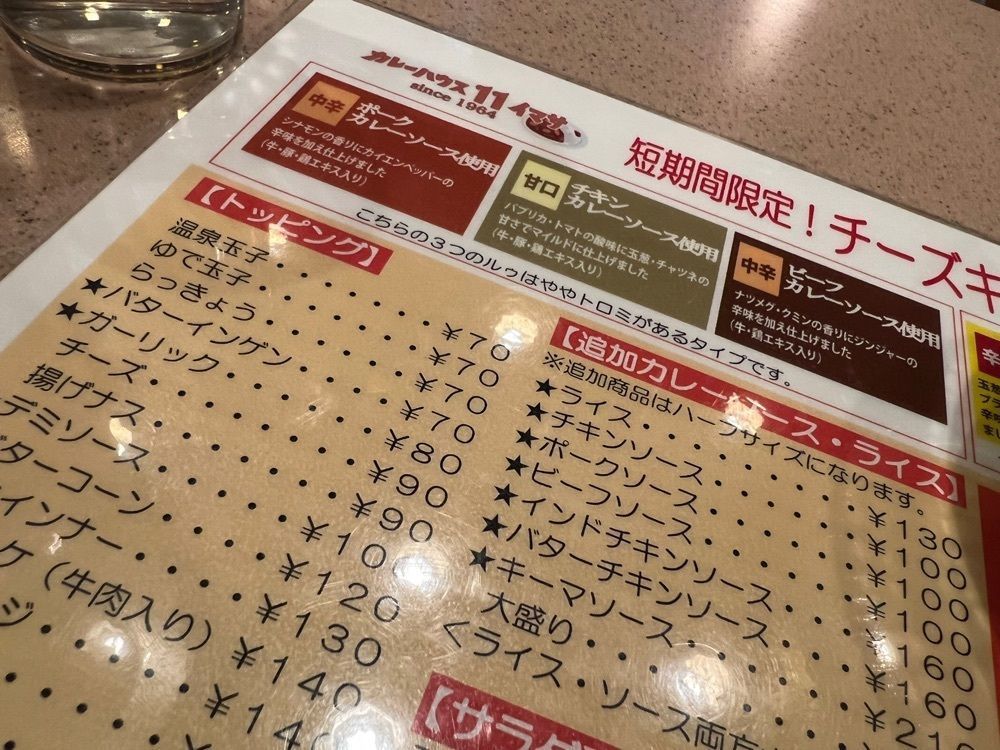 カレーハウス 11 イマサ
since 1964
短期間限定！チーズキ
中辛
ポーク
カレーソース使用
シナモンの香りにカイエンペッパーの
辛味を加え仕上げました
（牛・豚・鶏エキス入り）
甘口
チキン
カレーソース使用
パプリカ・トマトの酸味に玉葱・チャツネの
甘さでマイルドに仕上げました
（牛・豚・鶏エキス入り）
中辛
ビーフ
カレーソース使用
ナツメグ・クミンの香りにジンジャーの
辛味を加え仕上げました
（牛・鶏エキス入り）
こちらの３つのルゥはややトロミがあるタイプです。
【トッピング】
温泉玉子・・・・・・¥７０
ゆで玉子・・・・・・¥７０
らっきょう・・・・・¥７０
★バターインゲン・・・¥７０
★ガーリック・・・・・¥８０
チーズ・・・・・・・¥９０
揚げナス・・・・・・¥９０
デミソース・・・・・¥１０
ターコーン・・・・¥１２０
インナー・・・・・¥１３０
ケ（牛肉入り）¥１４０
ジ・・・・・・¥１４
【追加カレーソース・ライス】
※追加商品はハーフサイズになります。
★ライス・・・・・・・¥１３０
★チキンソース・・・・・¥１００
★ポークソース・・・・・¥１００
★ビーフソース・・・・・¥１００
★インドチキンソース・・¥１６０
★バターチキンソース・・¥１６０
★キーマソース・・・・・¥２１０
大盛り・・・・・・
＜ライス・ソース両方
【サラダ